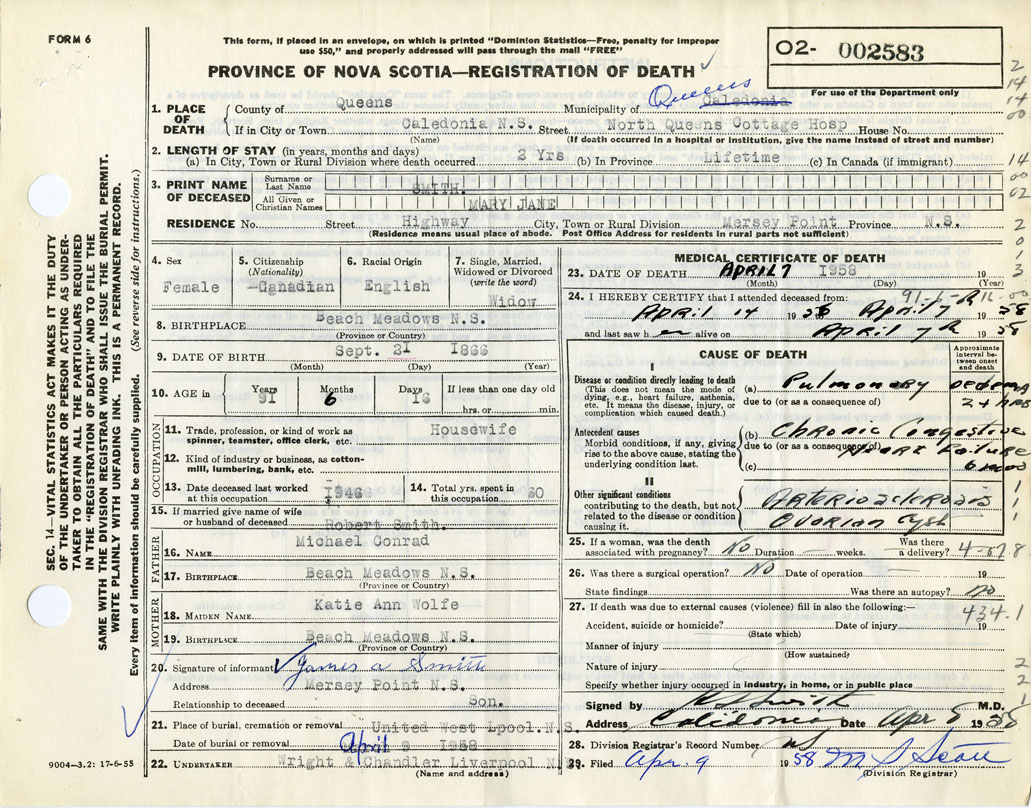 FORM 6
This form, if placed in an envelope, on which is printed "Dominion Statistics—Free, penalty for improper
use $50," and properly addressed will pass through the mail "FREE"
PROVINCE OF NOVA SCOTIA—REGISTRATION OF DEATH
02- 002583
For use of the Department only
1. PLACE OF DEATH
County of Queens Municipality of Queens Caledonia
If in City or Town Caledonia N.S. Street North Queens Cottage Hosp House No.
(Name) (If death occurred in a hospital or institution, give the name instead of street and number)
2. LENGTH OF STAY (in years, months and days)
(a) In City, Town or Rural Division where death occurred 2 Yrs (b) In Province Lifetime (c) In Canada (if immigrant)
3. PRINT NAME OF DECEASED
Surname or Last Name SMITH.
All Given or Christian Names MARY JANE
RESIDENCE No. Street Highway City, Town or Rural Division Mersey Point Province N.S.
(Residence means usual place of abode. Post Office Address for residents in rural parts not sufficient)
4. Sex Female
5. Citizenship (Nationality) Canadian
6. Racial Origin English
7. Single, Married, Widowed or Divorced (write the word) Widow
8. BIRTHPLACE Beach Meadows N.S.
(Province or Country)
9. DATE OF BIRTH Sept. 21 1866
(Month) (Day) (Year)
10. AGE in Years 91 Months 6 Days 16 If less than one day old hrs. or min.
OCCUPATION
11. Trade, profession, or kind of work as spinner, teamster, office clerk, etc. Housewife
12. Kind of industry or business, as cotton-mill, lumbering, bank, etc.
13. Date deceased last worked at this occupation 1946
14. Total yrs. spent in this occupation 60
15. If married give name of wife or husband of deceased Robert Smith.
FATHER
16. NAME Michael Conrad
17. BIRTHPLACE Beach Meadows N.S.
(Province or Country)
MOTHER
18. MAIDEN NAME Katie Ann Wolfe
19. BIRTHPLACE Beach Meadows N.S.
(Province or Country)
20. Signature of informant James A Smith
Address Mersey Point N.S.
Relationship to deceased Son.
21. Place of burial, cremation or removal United West Lpool. N.S.
Date of burial or removal April 9 1958
22. UNDERTAKER Wright & Chandler Liverpool N.S.
(Name and address)
MEDICAL CERTIFICATE OF DEATH
23. DATE OF DEATH APRIL 7 1958 19
(Month) (Day) (Year)
24. I HEREBY CERTIFY that I attended deceased from:
April 14 19 April 7th 19 58
and last saw h er alive on April 7th 19 58
CAUSE OF DEATH
Approximate interval between onset and death
I
Disease or condition directly leading to death
(This does not mean the mode of dying, e.g., heart failure, asthenia, etc. It means the disease, injury, or complication which caused death.)
(a) Pulmonary oedema
due to (or as a consequence of) 24 hrs
Antecedent causes
Morbid conditions, if any, giving rise to the above cause, stating the underlying condition last.
(b) Chronic Congestive
due to (or as a consequence of) Heart Failure
(c) 6 mos
II
Other significant conditions contributing to the death, but not related to the disease or condition causing it.
Arteriosclerosis
Ovarian cyst
25. If a woman, was the death associated with pregnancy? No Duration weeks. Was there a delivery?
26. Was there a surgical operation? No Date of operation 19
State findings Was there an autopsy? no
27. If death was due to external causes (violence) fill in also the following:—
434.1
Accident, suicide or homicide? Date of injury 19
(State which)
Manner of injury
(How sustained)
Nature of injury
Specify whether injury occurred in industry, in home, or in public place
Signed by Smith M.D.
Address Caledonia Date Apr 19 58
28. Division Registrar's Record Number
29. Filed Apr. 9 19 58 M S Scott
(Division Registrar)
9004—3.2: 17-6-55
SEC. 14—VITAL STATISTICS ACT MAKES IT THE DUTY
OF THE UNDERTAKER OR PERSON ACTING AS UNDER-
TAKER TO OBTAIN ALL THE PARTICULARS REQUIRED
IN THE "REGISTRATION OF DEATH" AND TO FILE THE
SAME WITH THE DIVISION REGISTRAR WHO SHALL ISSUE THE BURIAL PERMIT.
WRITE PLAINLY WITH UNFADING INK. THIS IS A PERMANENT RECORD.
Every item of information should be carefully supplied. (See reverse side for instructions.)